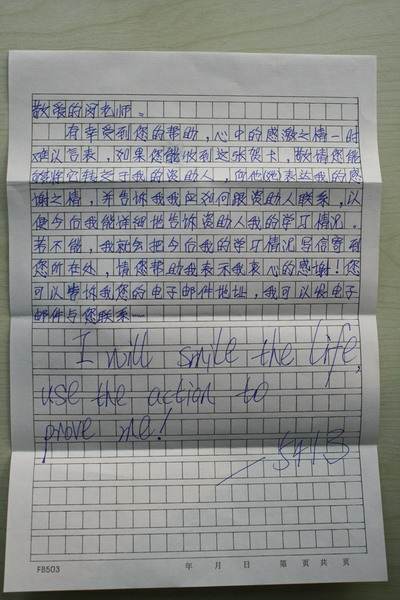 敬爱的闵老师。
有幸受到您的帮助，心中的感激之情一时
难以言表，如果您能收到这张贺卡，敬请您能
够将它转交于我的资助人，向他(她)表达我的感
谢之情，并告诉我我应如何跟资助人联系，以
便今后我能详细地告诉资助人我的学习情况。
若不能，我就会把今后我的学习情况写信寄到
您所在处，请您帮助我表示我衷心的感谢！您
可以告诉我您的电子邮件地址，我可以发电子
邮件与您联系……
I will smile the life,
use the action to
prove me!
5413
FB503 年 月 日 第 页 共 页